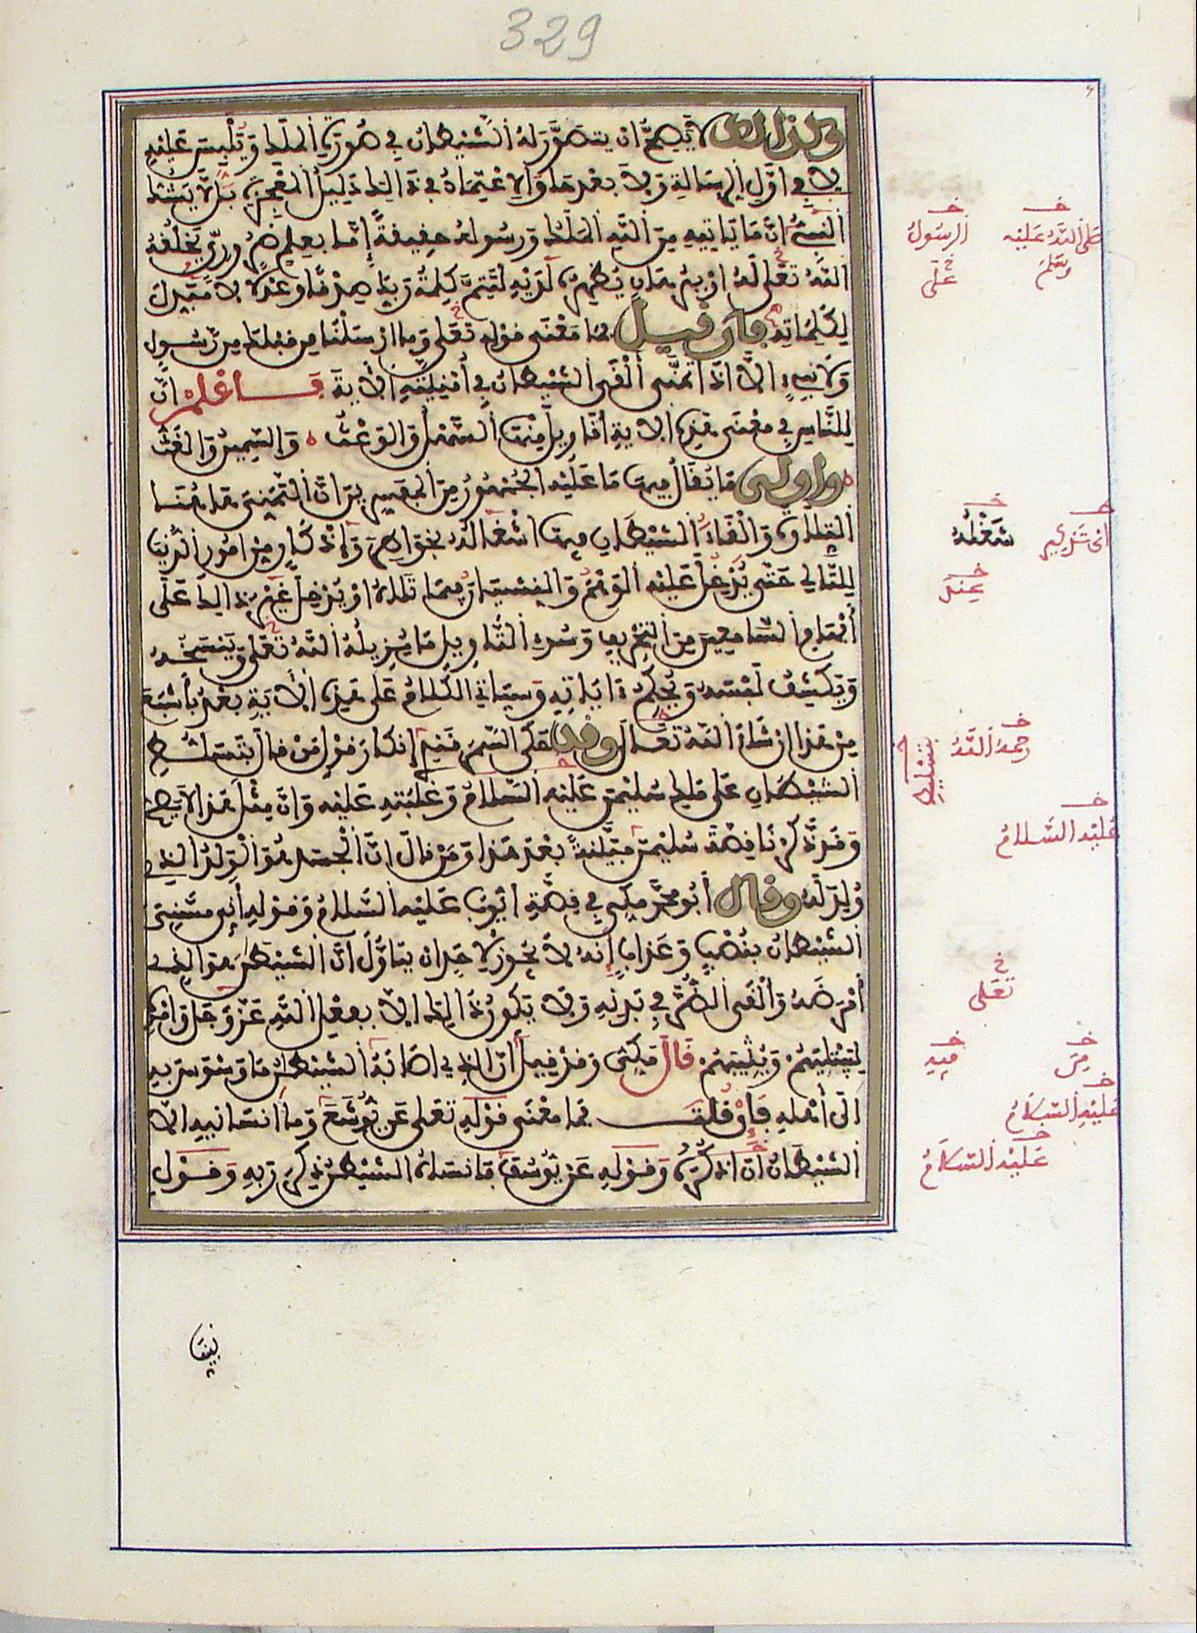 329
وكذلك لا يصح أن يتصور له الشيطان في صورة الملك ويلبس عليه
لا في أول الرسالة ولا بعدها والاعتماد في ذلك دليل المعجزة بل لا يشك
النبي أن ما يأتيه من الله الملك ورسوله حقيقة إما بعلم ضروري يخلقه
الله تعلى له أو ببرهان يظهره لديه لتتم كلمة ربك صدقا وعدلا لا مبدل
لكلماته فإن قيل فما معنى قوله تعلى وما أرسلنا من قبلك من رسول
ولا نبي إلا إذا تمنى ألقى الشيطان في أمنيته الآية فاعلم أن
للناس في معنى هذه الآية أقاويل منها السهل والوعث والسمين والغث
وأولى ما يقال فيها ما عليه الجمهور من المفسرين أن التمني هاهنا
التلاوة وإلقاء الشيطان فيها إشغاله بخواطر وأذكار من أمور الدنيا
للتالي حتى يدخل عليه الوهم والنسيان فيما تلاه أو يدخل غير ذلك على
أفهام السامعين من التحريف وسوء التأويل ما يزيله الله تعلى وينسخه
ويكشف لبسه ويحكم ءاياته وسيأتي الكلام على هذه الآية بعد بأشبع
من هذا إن شاء الله تعالى وقد حكى السمرقندي إنكار قول من قال بتسلط
الشيطان على ملك سليمن عليه السلام وغلبته عليه وأن مثل هذا لا يصح
وقد ذكرنا قصة سليمن مبينة بعد هذا ومن قال إن الجسد هو الولد الذي
ولد له وقال أبو محمد مكي في قصة أيوب عليه السلام وقوله أني مسني
الشيطان بنصب وعذاب إنه لا يجوز لأحد أن يتأول أن الشيطن هو الذي
أمرضه وألقى الضر في بدنه ولا يكون ذلك إلا بفعل الله عز وجل وأمره
ليبتليهم ويثيبهم قال مكي وقد قيل أن الذي أصابه الشيطن ما وسوس به
إلى أهله فإن قلت فما معنى قوله تعلى عن يوشع وما أنسانيه إلا
الشيطان أن أذكره وقوله عن يوسف فأنساه الشيطن ذكر ربه وقول
صلى الله عليه وسلم
الرسول
على
شغله
رحمه الله
بتسليط
عليه السلام
تعلى
من
فيه
عليه السلام
عليه السلام
نبينا